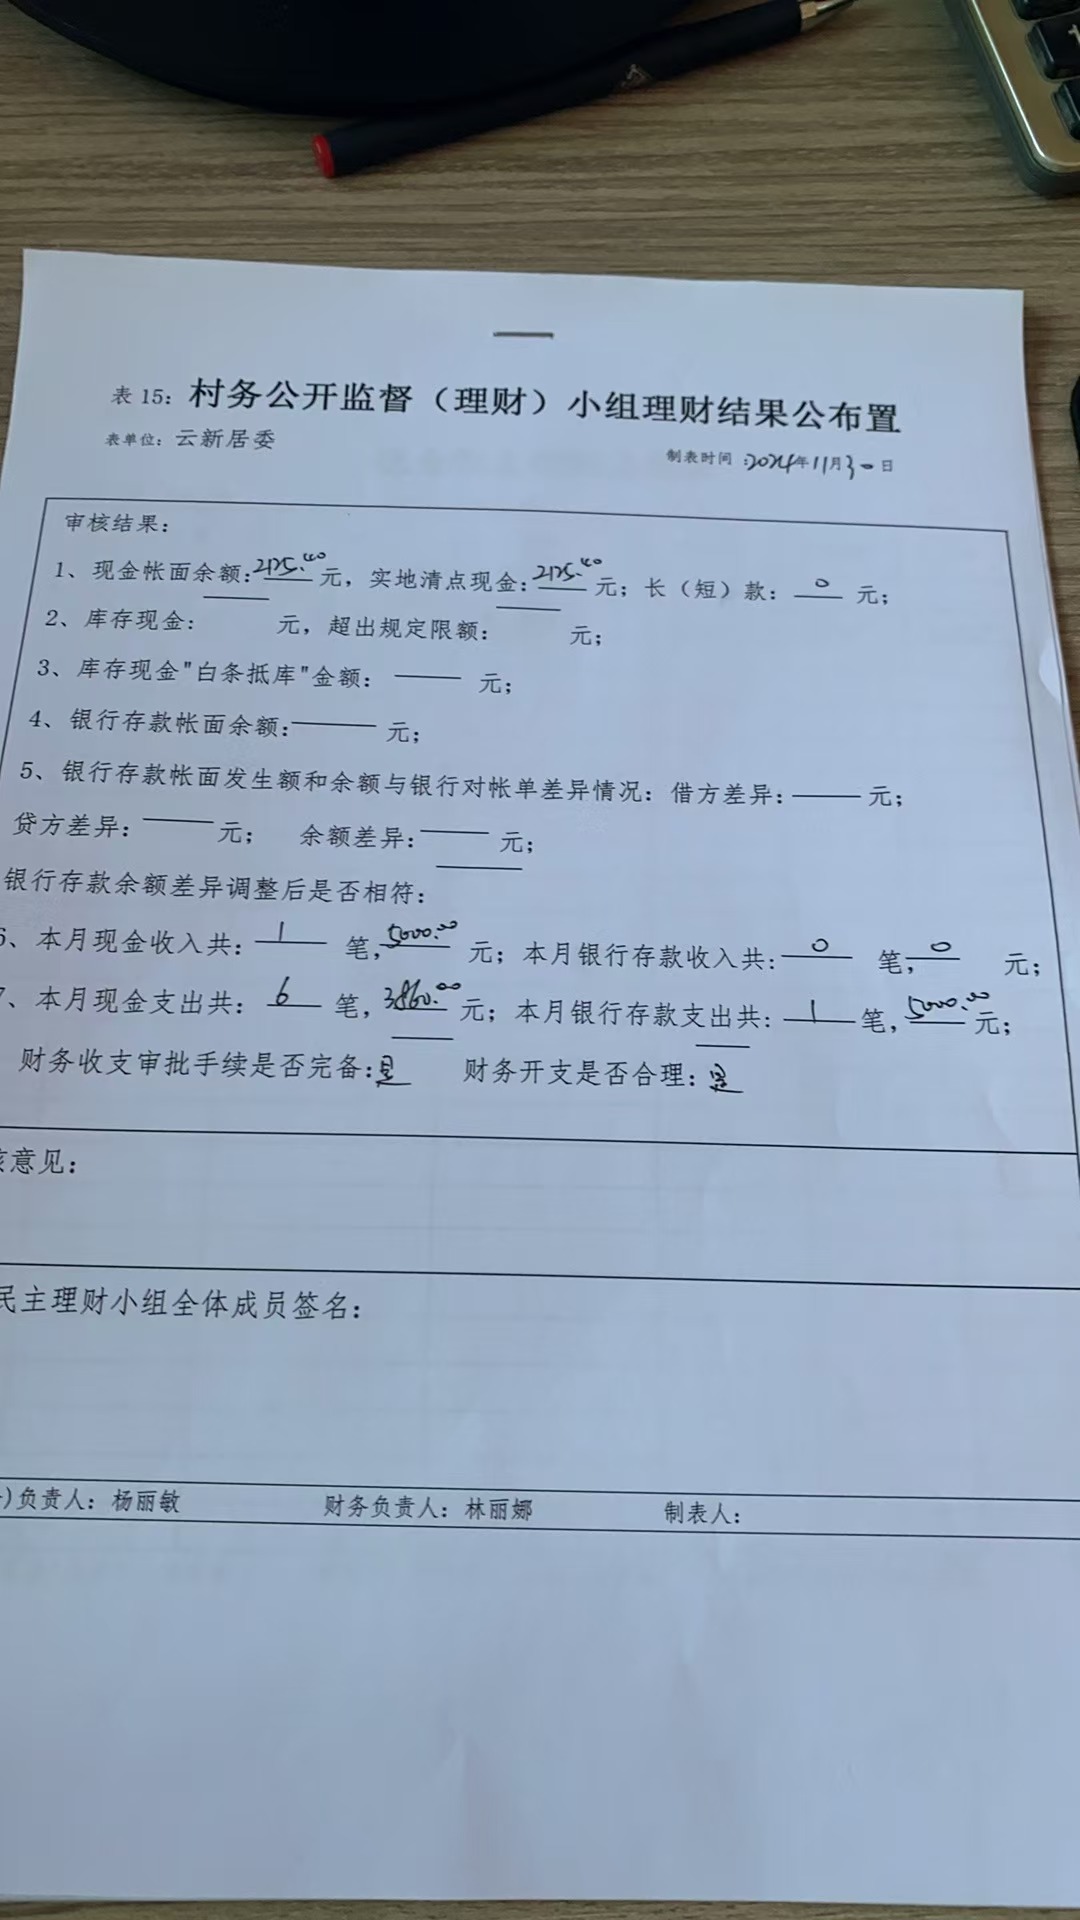 表 15：村务公开监督（理财）小组理财结果公布置
表单位：云新居委
制表时间：2024年11月30日
审核结果：
1、现金帐面余额：2125.40元，实地清点现金：2125.40元；长（短）款：0元；
2、库存现金： 元，超出规定限额： 元；
3、库存现金"白条抵库"金额： 元；
4、银行存款帐面余额： 元；
5、银行存款帐面发生额和余额与银行对帐单差异情况：借方差异： 元；
贷方差异： 元； 余额差异： 元；
银行存款余额差异调整后是否相符：
6、本月现金收入共：1笔，5000.00元；本月银行存款收入共：0笔，0元；
7、本月现金支出共：6笔，3860.00元；本月银行存款支出共：1笔，5000.00元；
财务收支审批手续是否完备：是 财务开支是否合理：是
核意见：
民主理财小组全体成员签名：
)负责人：杨丽敏 财务负责人：林丽娜 制表人：